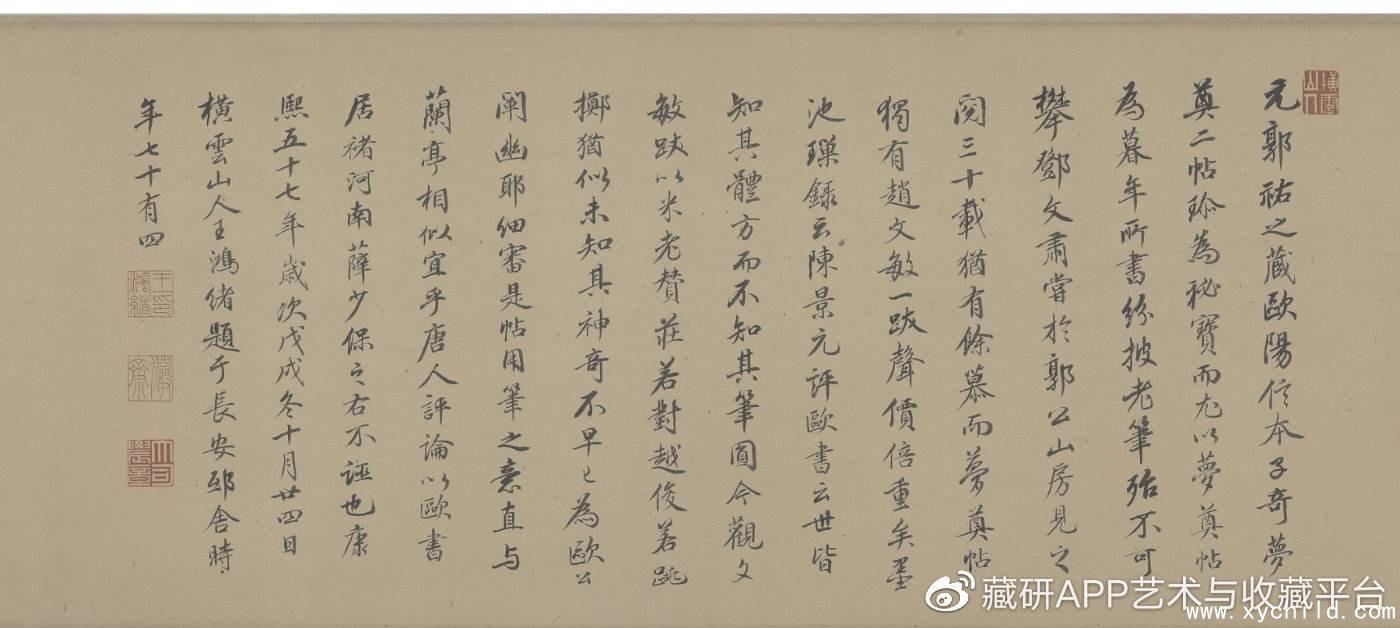 元郭祐之蔵歐陽信本子奇夢
奠二帖珍為秘寶而尤以夢奠帖
為暮年所書紛披老筆殆不可
攀鄧文肅嘗於郭公山房見之
閱三十載猶有餘慕而夢奠帖
獨有趙文敏一跋聲價倍重矣墨
池璅錄云陳景元評歐書云世皆
知其體方而不知其筆圓今觀文
敏跋以米老贊莊若對越俊若跳
擲猶似未知其神奇不早已為歐公
闡幽耶細審是帖用筆之意直与
蘭亭相似宜乎唐人評論以歐書
居褚河南薛少保之右不誣也康
熙五十七年歲次戊戌冬十月廿四日
橫雲山人王鴻緒題于長安邸舍時
年七十有四
橫雲山人
王印鴻緒
儼齋
藏研APP艺术与收藏平台
www.xychild.com